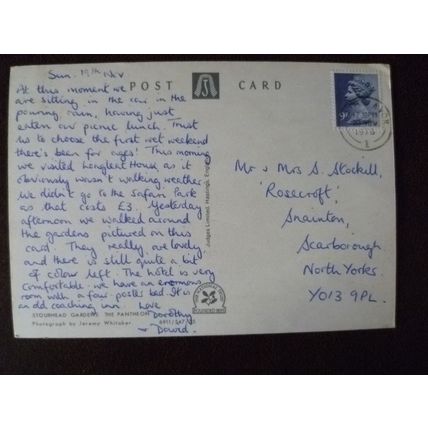 Sun. 19th Nov
POST CARD
At this moment we
are sitting in the car in the
pouring rain, having just
eaten our picnic lunch. Trust
us to choose the first wet weekend
there's been for ages! This morning
we visited Longleat House, as it
obviously wasn't walking weather.
We didn't go to the Safari Park
as that costs £3. Yesterday
afternoon we walked around
the gardens pictured on this
card. They really are lovely
and there is still quite a bit
of colour left. The hotel is very
comfortable - we have an enormous
room with a four poster bed. It is
an old coaching inn. Love
Dorothy
David.
STOURHEAD GARDENS: THE PANTHEON
Photograph by Jeremy Whitaker
Judges Limited, Hastings, England
9P
Mr & Mrs S. Stockill,
'Rosecroft',
Snainton,
Scarborough
North Yorks.
YO13 9PL.